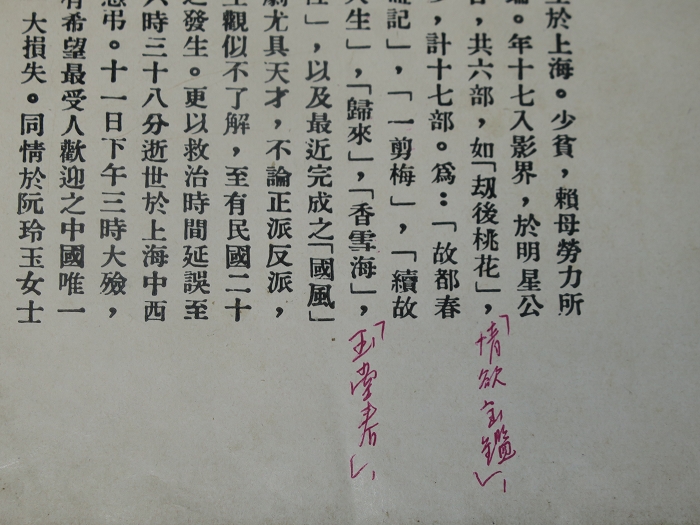 生於上海。少貧，賴母勞力所
。年十七入影界，於明星公
，共六部，如「刼後桃花」，「情欲宝鑑」，
，計十七部。爲：「故都春
記」，「一剪梅」，「續故
人生」，「歸來」，「香雪海」，「玉堂春」，
」，以及最近完成之「國風」
劇尤具天才，不論正派反派，
主觀似不了解，至有民國二十
之發生。更以救治時間延誤至
八時三十八分逝世於上海中西
弔。十一日下午三時大殮，
有希望最受人歡迎之中國唯一
大損失。同情於阮玲玉女士